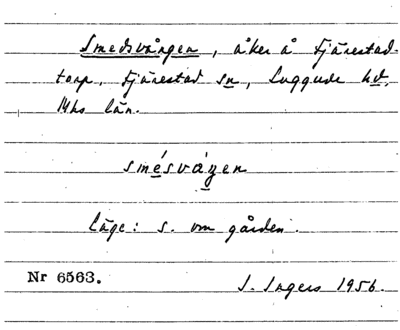 Smedsvången, åker å Fjärestad-
torp, Fjärestad sn, Luggude hd,
Mhs län.
smésváŋen
läge: s. om gården.
Nr 6563.
I. Ingers 1956.